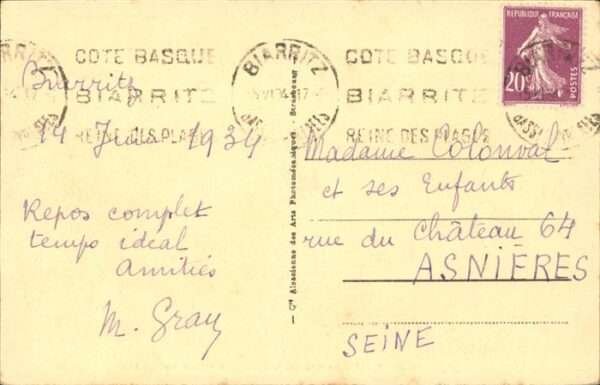 COTE BASQUE
BIARRITZ
REINE DES PLAGES
BIARRITZ
COTE BASQUE
BIARRITZ
REINE DES PLAGES
REPUBLIQUE FRANÇAISE
20
POSTES
Biarritz
14 Juin 1934
Repos complet
temps idéal
Amitiés
M. Gray
Cie Alsacienne des Arts Photomécaniques - Strasbourg
Madame Colonval
et ses Enfants
rue du Château 64
ASNIÈRES
SEINE